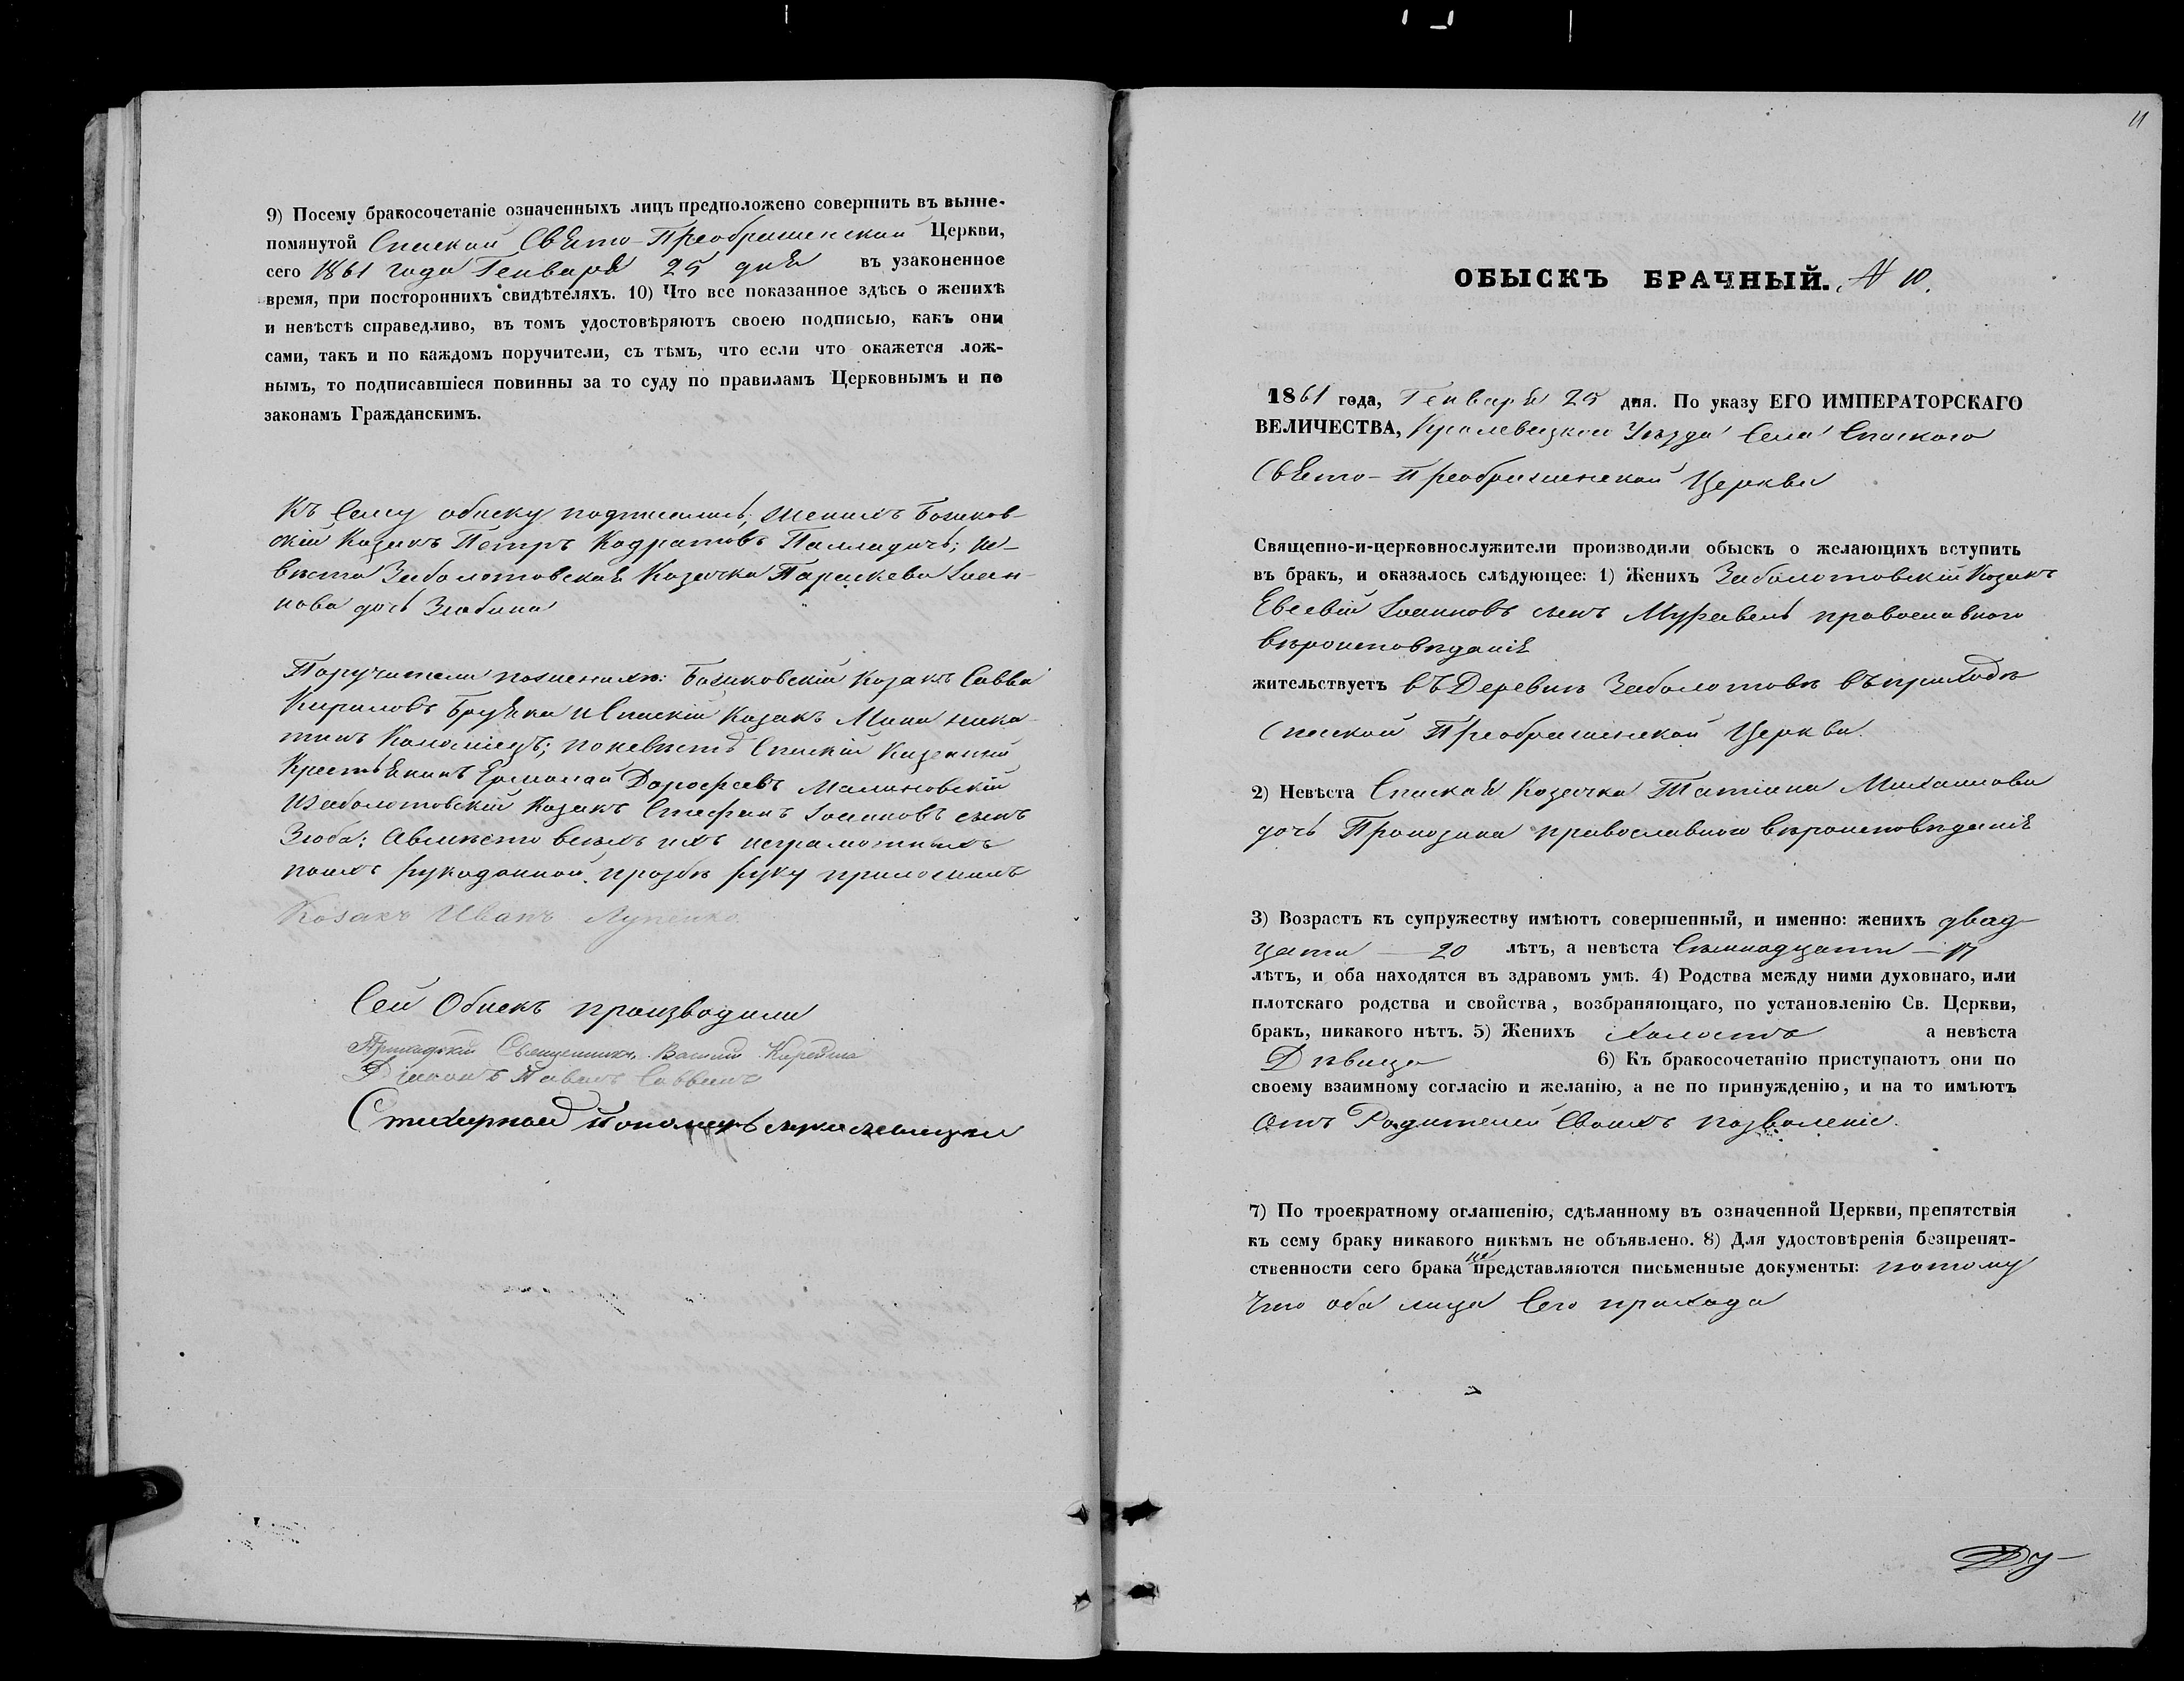 9) Посему бракосочетаніе означенныхъ лицъ предположено совершить въ выше-
помянутой Спаской Свято-Преображенской Церкви,
сего 1861 года Генваря 25 дня въ узаконенное
время, при постороннихъ свидѣтеляхъ. 10) Что все показанное здѣсь о женихѣ
и невѣстѣ справедливо, въ томъ удостовѣряютъ своею подписью, какъ они
сами, такъ и по каждомъ поручители, съ тѣмъ, что если что окажется лож-
нымъ, то подписавшіеся повинны за то суду по правиламъ Церковнымъ и по
законамъ Гражданскимъ.
Къ Сему обиску подписались; женихъ Божков-
скій Козакъ Петръ Кодратовъ Палладичъ; не-
вѣста Заболотовская Козачка Параскева Іоан-
нова дочь Зюбина
Поручители поженихѣ: Божковскій Козакъ Савва
Кириловъ и Спаскій Козакъ Мина
Коломіецъ; поневѣстѣ Спаскій Казенный
Крестьянинъ Ермолай Дорофеевъ Малиновскій
Изаболотовскій Козакъ Стефанъ Іоанновъ сынъ
Зюба; Авмѣсто всѣхъ ихъ неграмотныхъ
поихъ рукоданной прозбѣ руку приложилъ
Козакъ Иванъ Лупенко
Сей Обискъ производили
Приходскій Священникъ Василій
Діаконъ Павелъ Саввичъ
11
ОБЫСКЪ БРАЧНЫЙ. № 10.
1861 года, Генваря 25 дня. По указу ЕГО ИМПЕРАТОРСКАГО
ВЕЛИЧЕСТВА, Кролевецкого Уѣзда Села Спаского
Свято-Преображенской Церкви
Священно-и-церковнослужители производили обыскъ о желающихъ вступить
въ бракъ, и оказалось слѣдующее: 1) Женихъ Заболотовскій Козакъ
Евсевій Іоанновъ сынъ Муравель православного
вѣроисповѣданія
жительствуетъ въ Деревнѣ Заболотовѣ въ приходѣ
Спаской Преображенской Церкви.
2) Невѣста Спаская Козачка Татіана Михаилова
дочь Прокозина православного вѣроисповѣданія
3) Возрастъ къ супружеству имѣютъ совершенный, и именно: женихъ двад-
цати — 20 лѣтъ, а невѣста Сѣмнадцати — 17
лѣтъ, и оба находятся въ здравомъ умѣ. 4) Родства между ними духовнаго, или
плотскаго родства и свойства, возбраняющаго, по установленію Св. Церкви,
бракъ, никакого нѣтъ. 5) Женихъ Холостъ а невѣста
Дѣвица 6) Къ бракосочетанію приступаютъ они по
своему взаимному согласію и желанію, а не по принужденію, и на то имѣютъ
Отъ Родителей Своихъ позволеніе.
7) По троекратному оглашенію, сдѣланному въ означенной Церкви, препятствія
къ сему браку никакого никѣмъ не объявлено. 8) Для удостовѣренія безпрепят-
ственности сего брака не представляются письменные документы: потому
Что оба лица Сего прихода